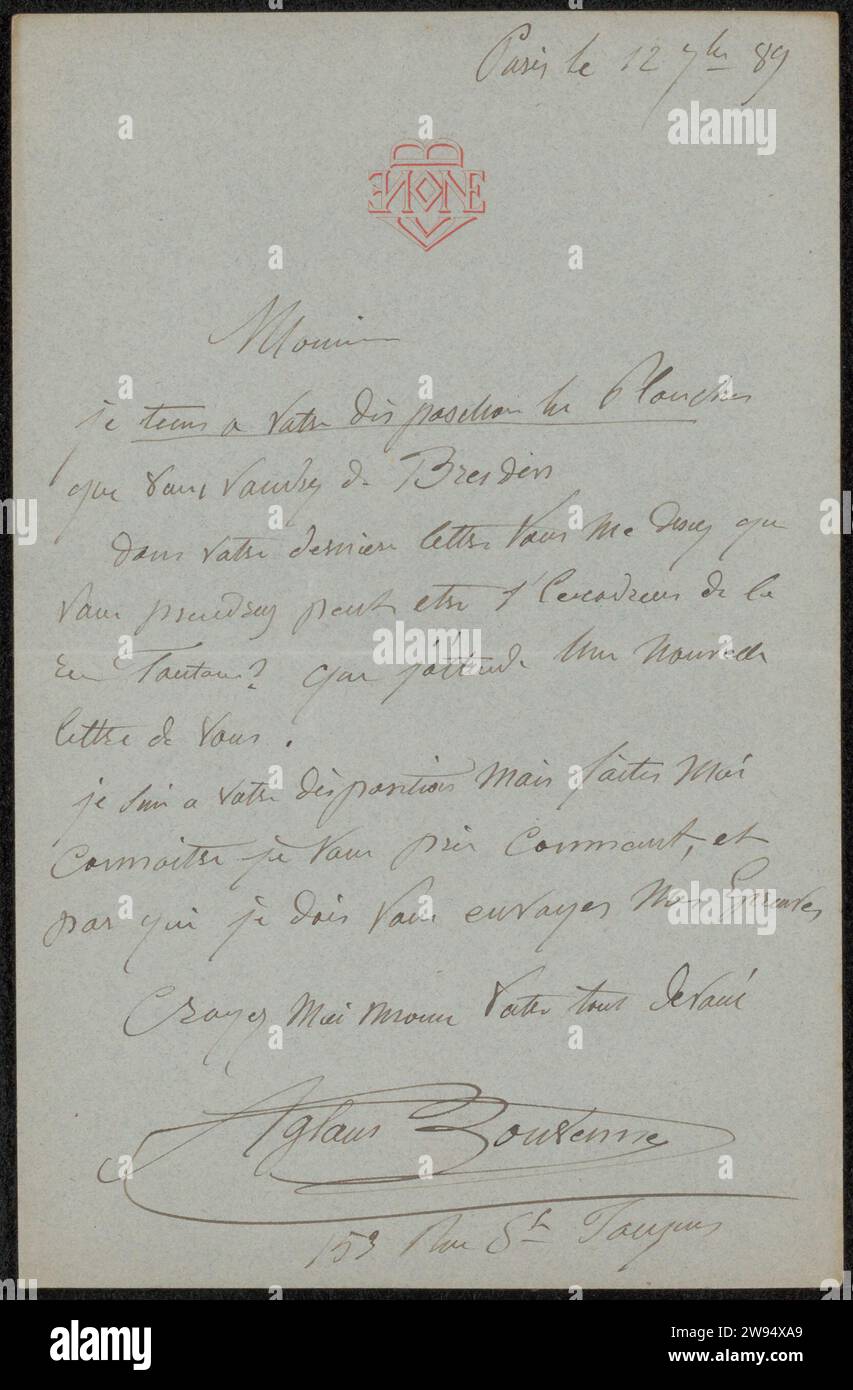 Paris le 12 7bre 89
Monsieur
je tiens a votre disposition les Planches
que vous voudrez de Bresdin
dans votre derniere lettre vous me disez que
vous prendrez peut etre l' de la
que j'attende une nouvelle
lettre de vous.
je suis a votre disposition mais faites moi
connaitre je vous prie comment, et
par qui je dois vous envoyer mes Epreuves
Croyez moi votre tout devoué
Aglaus Bouvenne
153 Rue St Jacques
alamy
Image ID: 2W94XA9
www.alamy.com